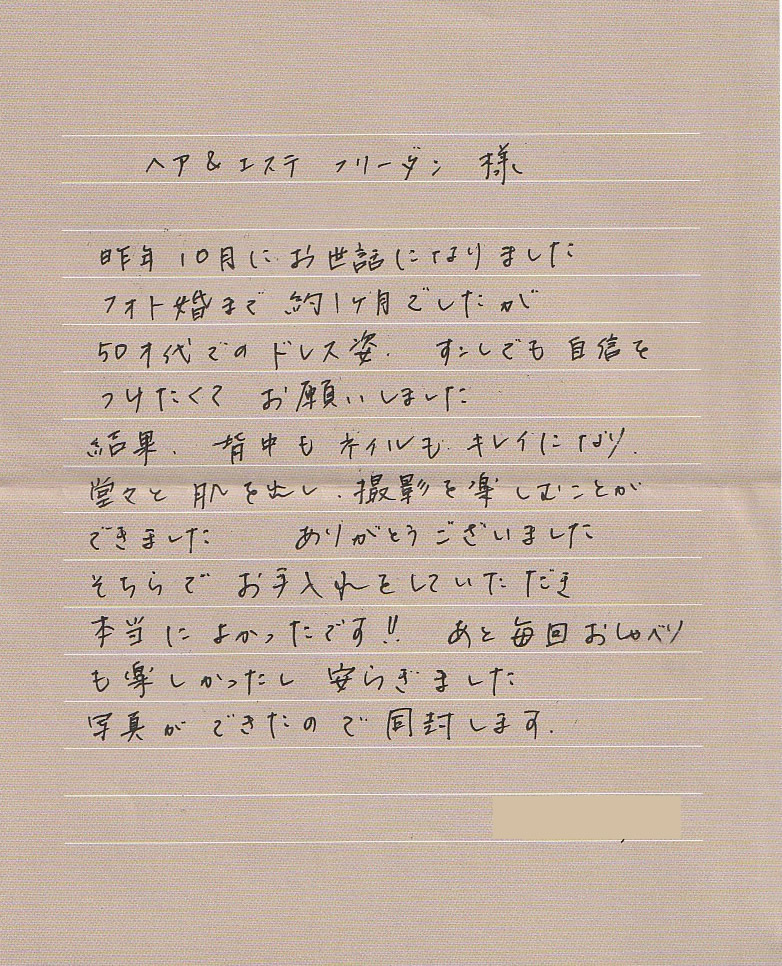 ヘア&エステ フリーダン 様
昨年10月にお世話になりました
フォト婚まで 約1ヶ月でしたが
50才代でのドレス姿、すこしでも自信を
つけたくて お願いしました
結果、背中もネイルも、キレイになり、
堂々と肌を出し、撮影を楽しむことが
できました ありがとうございました
そちらで お手入れをしていただき
本当によかったです!! あと毎回おしゃべり
も楽しかったし 安らぎました
写真ができたので同封します.